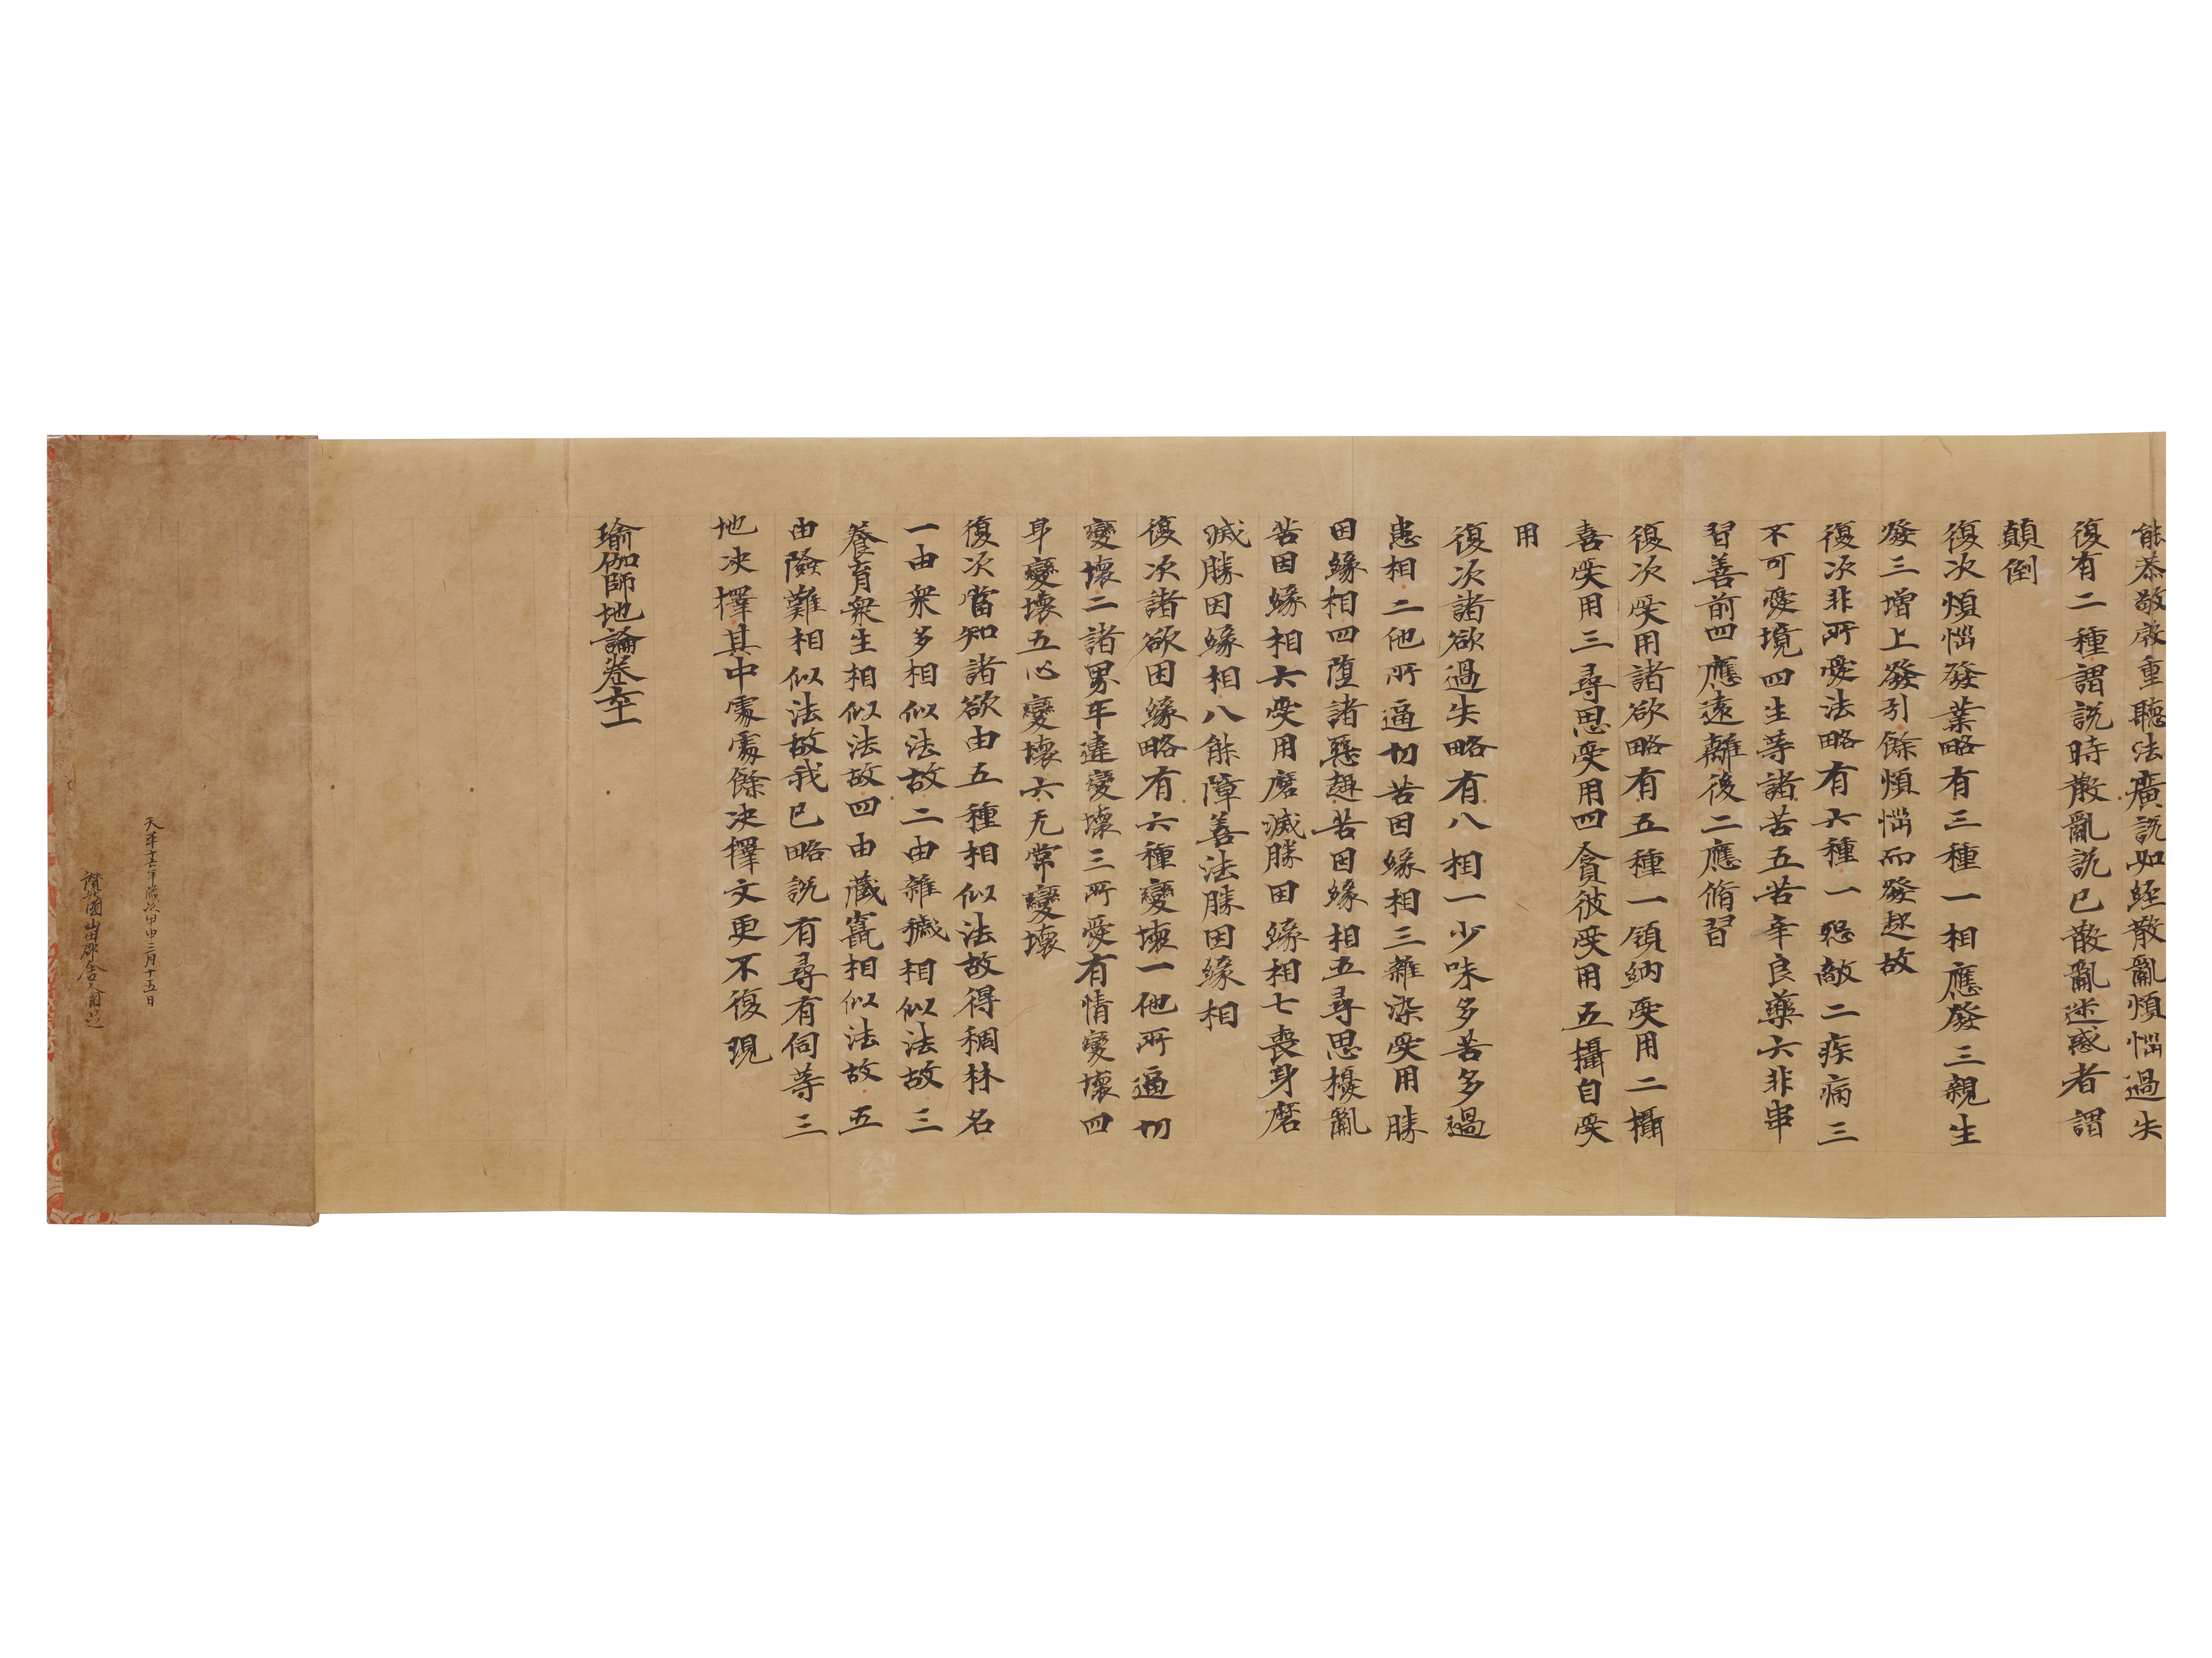 能恭敬啟重聽法廣説如經散亂煩惱過失
復有二種謂説時散亂説已散亂迷惑者謂
顛倒
復次煩惱發業略有三種一相應發三親生
發三增上發引餘煩惱而發起故
復次非所愛法略有六種一怨敵二疾病三
不可愛境四生等諸苦五苦辛良藥六非串
習善前四應遠離後二應脩習
復次受用諸欲略有五種一領納受用二攝
善受用三尋思受用四貪彼受用五攝自受
用
復次諸欲過失略有八相一少味多苦多過
患相二他所逼切苦因緣相三雜染受用勝
因緣相四墮諸惡趣苦因緣相五尋思擾亂
苦因緣相六受用磨滅勝因緣相七喪身磨
滅勝因緣相八能障善法勝因緣相
復次諸欲因緣略有六種變壞一他所逼切
變壞二諸界互違變壞三所愛有情變壞四
身變壞五心變壞六无常變壞
復次當知諸欲由五種相似法故得稠林名
一由衆多相似法故二由雜穢相似法故三
養育衆生相似法故四由藏竄相似法故五
由險難相似法故我已略説有尋有伺等三
地決擇其中處處餘決擇文更不復現
瑜伽師地論卷六十一
天平十六年歳次甲申三月十五日
讃岐國山田郡舎人